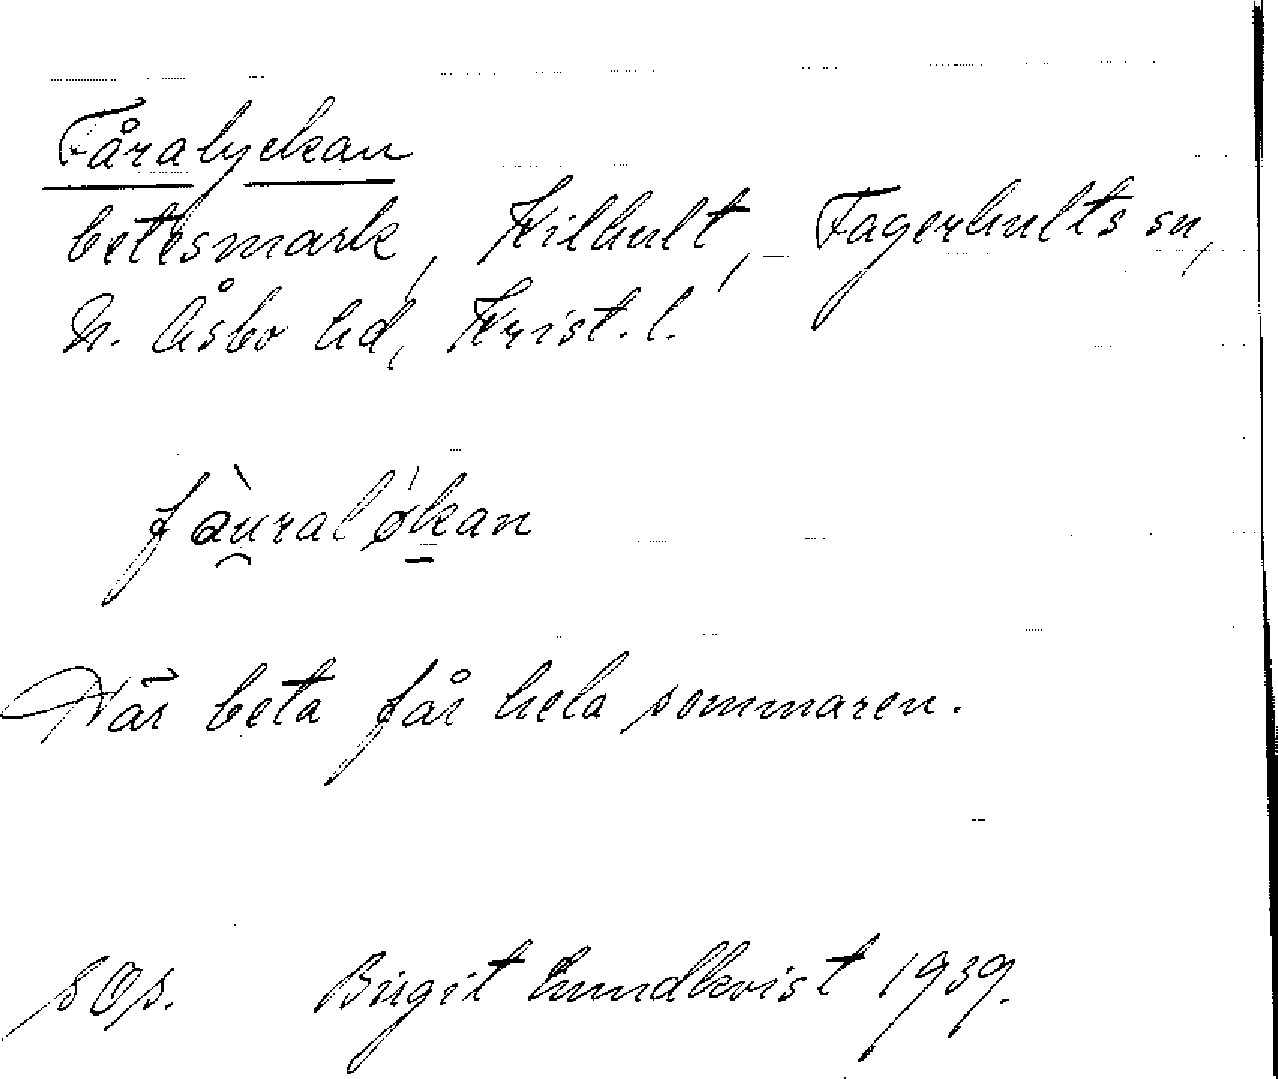 Fåralyckan
betesmark, Kilhult, Fagerhults sn,
N. Åsbo hd, Krist. l.
fàu̯ralø̍k̲an
Där beta får hela sommaren.
sOs. Birgit Lundkvist 1939.